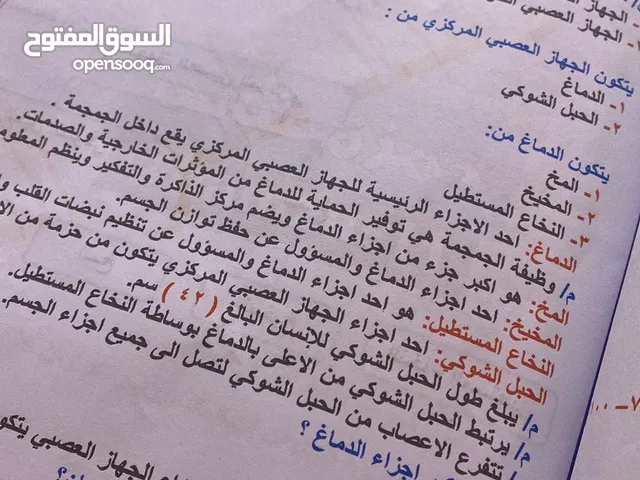 السوق المفتوح
opensooq.com
- الجهاز العصبي
يتكون الجهاز العصبي المركزي من :
١- الدماغ
٢- الحبل الشوكي
يتكون الدماغ من:
١- المخ
٢- المخيخ
٣- النخاع المستطيل
الدماغ: احد الاجزاء الرئيسية للجهاز العصبي المركزي يقع داخل الجمجمة .
م/ وظيفة الجمجمة هي توفير الحماية للدماغ من المؤثرات الخارجية والصدمات.
المخ: هو اكبر جزء من اجزاء الدماغ ويضم مركز الذاكرة والتفكير وينظم
المخيخ: احد اجزاء الدماغ والمسؤول عن حفظ توازن الجسم.
النخاع المستطيل: هو احد اجزاء الدماغ والمسؤول عن تنظيم نبضات القلب
الحبل الشوكي: احد اجزاء الجهاز العصبي المركزي يتكون من حزمة من
م/ يبلغ طول الحبل الشوكي للإنسان البالغ ( ٤٢ ) سم.
م/ يرتبط الحبل الشوكي من الاعلى بالدماغ بوساطة النخاع المستطيل.
م/ تتفرع الاعصاب من الحبل الشوكي لتصل الى جميع اجزاء الجسم.
اجزاء الدماغ ؟
الجهاز العصبي